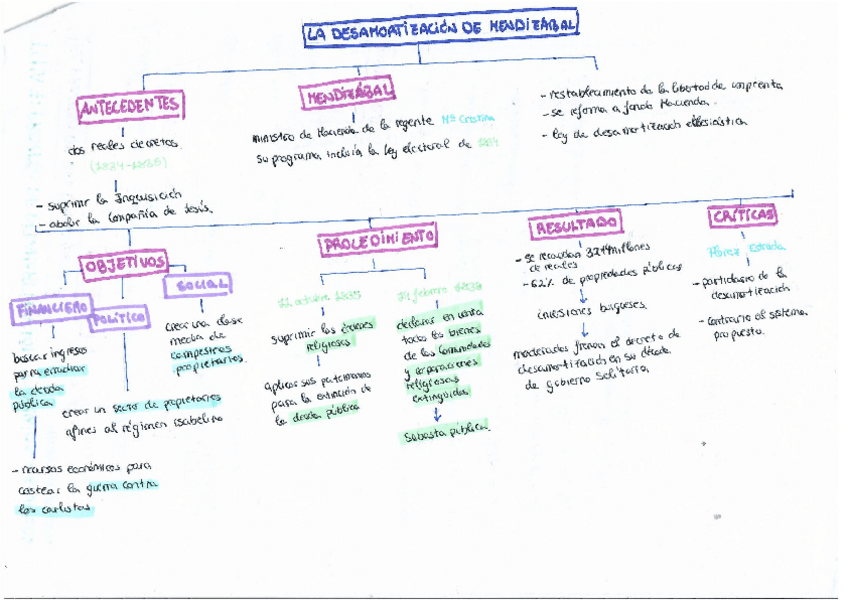 LA DESAMORTIZACIÓN DE MENDIZÁBAL
ANTECEDENTES
dos reales decretos
(1834-1835)
- suprimir la Inquisición
- abolir la Compañía de Jesús.
MENDIZÁBAL
ministro de Hacienda de la regente Mª Cristina
su programa incluía la Ley electoral de
- restablecimiento de la libertad de imprenta
- se reforma a fondo Hacienda.
- ley de desamortización eclesiástica
OBJETIVOS
FINANCIERO
buscar ingresos
para enjugar
la deuda
pública
- recursos económicos para
costear la guerra contra
los carlistas
POLÍTICO
crear un sector de propietarios
afines al régimen isabelino
SOCIAL
crear una clase
media de
campesinos
propietarios.
PROCEDIMIENTO
11 octubre 1835
suprimir las órdenes
religiosas
aplicar sus patrimonios
para la extinción de
la deuda pública
febrero
declarar en venta
todos los bienes
de las comunidades
y corporaciones
religiosas
extinguidas
subasta pública.
RESULTADO
- se recaudan millones
de reales
- 62% de propiedades públicas
inversiones burguesas.
moderados frenan el decreto de
desamortización en su década
de gobierno
CRÍTICAS
Flórez Estrada
- partidario de la
desamortización
- contrario al sistema
propuesto.